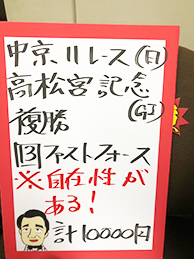 中京11レース(日)
高松宮記念
(GI)
複勝
13ファストフォース
※自在性が
ある!
計10000円